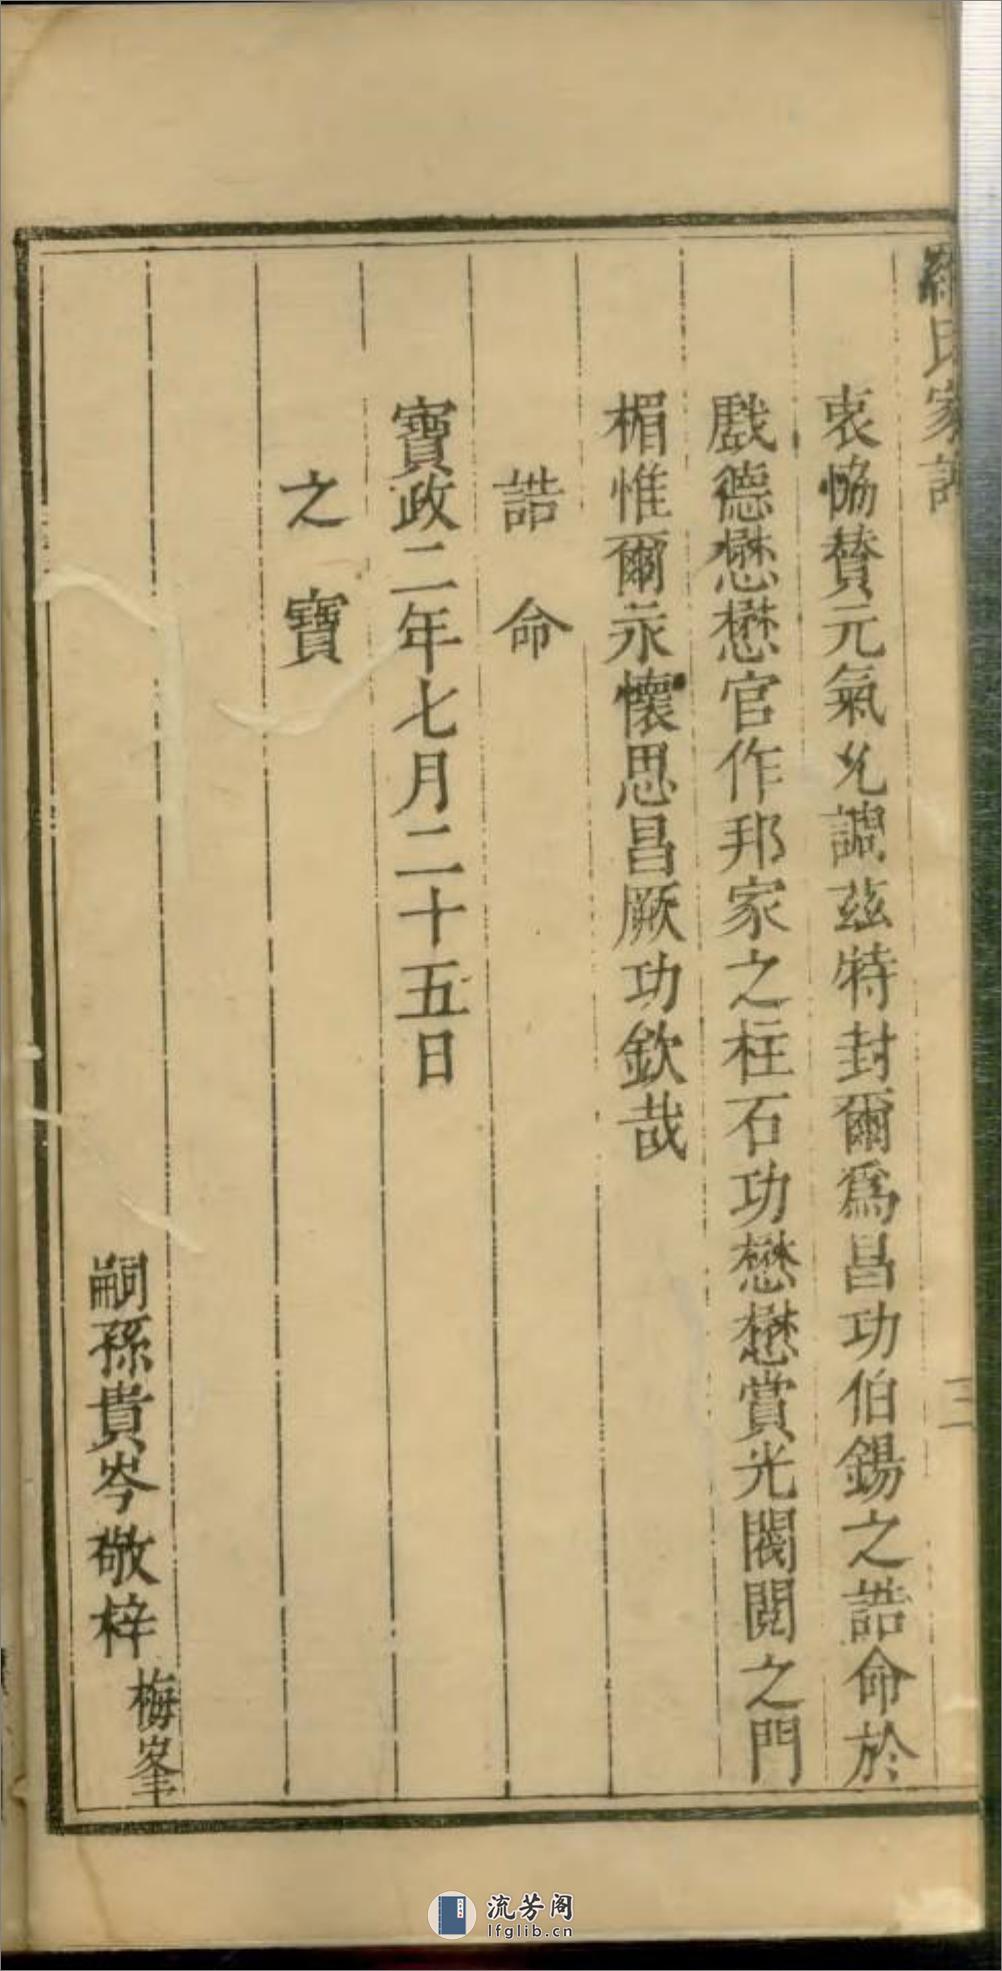 羅氏家譜
三
衷恊贊元氣允調茲特封爾爲昌功伯錫之誥命於
戲德懋懋官作邦家之柱石功懋懋賞光閥閱之門
楣惟爾永懷思昌厥功欽哉
誥命
寶政二年七月二十五日
之寶
嗣孫貴岑敬梓
梅峯
流芳阁
lfglib.cn